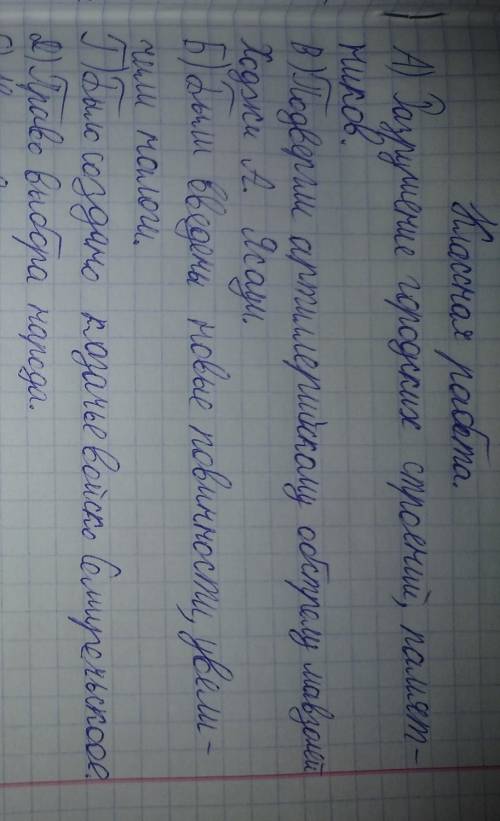 Классная работа.
А) Разрушение городских строений, памят-
ников.
В) Подвергли артиллерийскому обстрелу мавзолей
Ходжи А. Ясауи.
Б) Были введены новые повинности, увели-
чили налоги.
Г) Было создано казачье войско Семиреченское.
2) Право выбора народа.